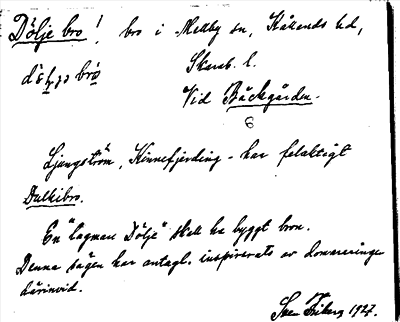 Dölje bro! bro i Medby sn, Kållands hd,
Skarab. l.
Vid Bäckgården.
6
Ljungström, Kinnefjerding - har felaktigt
Dulkibro.
En "lagman Dölje" skall ha byggt bron.
Denna sägen har antagl. inspirerats av domareringen
därinvid.
1927.